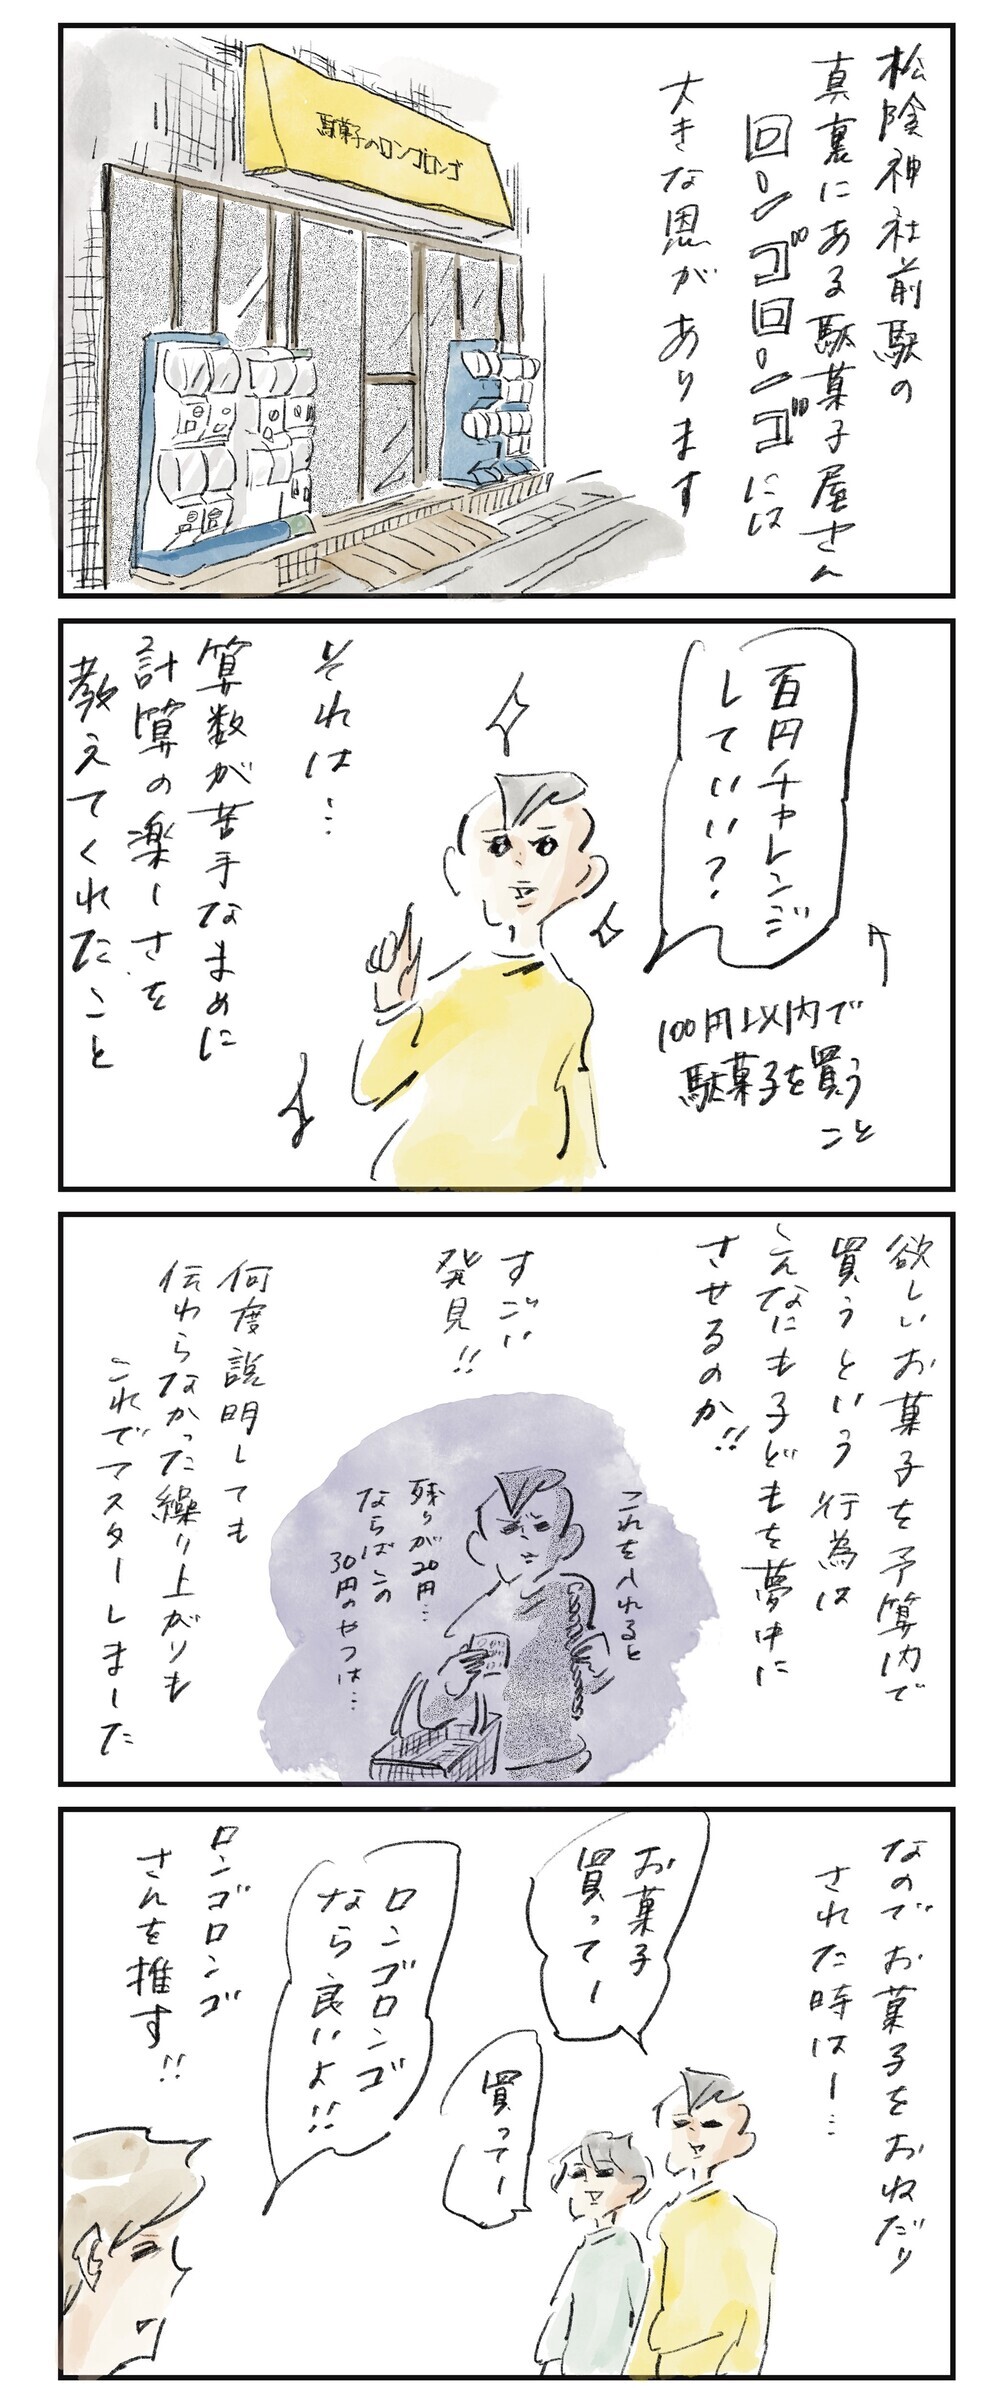 松陰神社前駅の
真裏にある駄菓子屋さん
ロンゴロンゴには
大きな恩があります
駄菓子のロンゴロンゴ
百円チャレンジ
していい？
100円以内で
駄菓子を買う
こと
それは…
算数が苦手なまめに
計算の楽しさを
教えてくれたこと
欲しいお菓子を予算内で
買うという行為は
こんなにも子どもを夢中に
させるのか!!
すごい
発見!!
これを入れると
残りが20円…
ならばこの
30円のやつは…
何度説明しても
伝わらなかった繰り上がりも
これでマスターしました
なのでお菓子をおねだり
された時は…
お菓子
買ってー
買ってー
ロンゴロンゴ
なら良いよ!!
ロンゴロンゴ
さんを推す!!